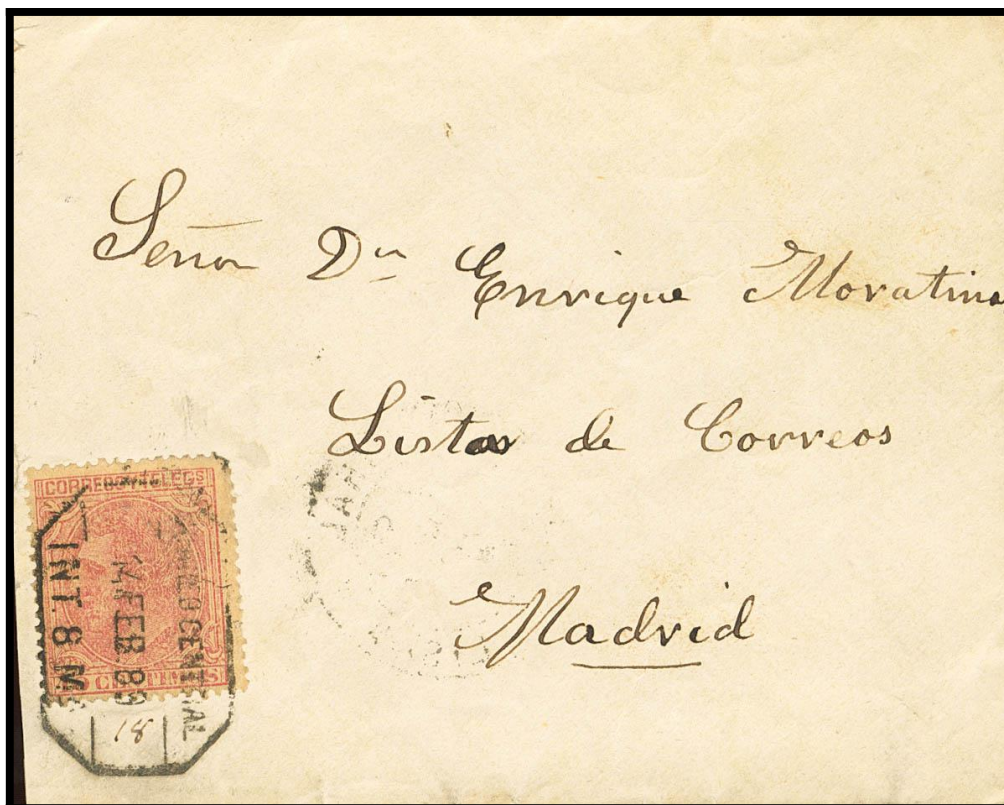 Señor Dn Enrique Moratino
Listas de Correos
Madrid
CORREOS Y TELEGS
CENTRAL
14.FEB.89
INT.8 M.
18